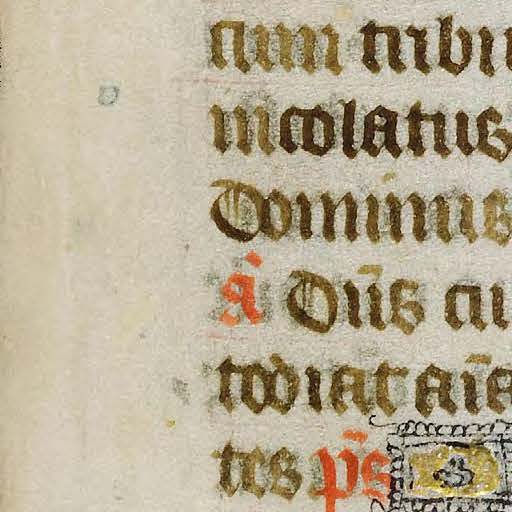 cum tribu
incolatus
Dominus
a᷑ Dn̄s cu
todiat aīa
tes ps̄